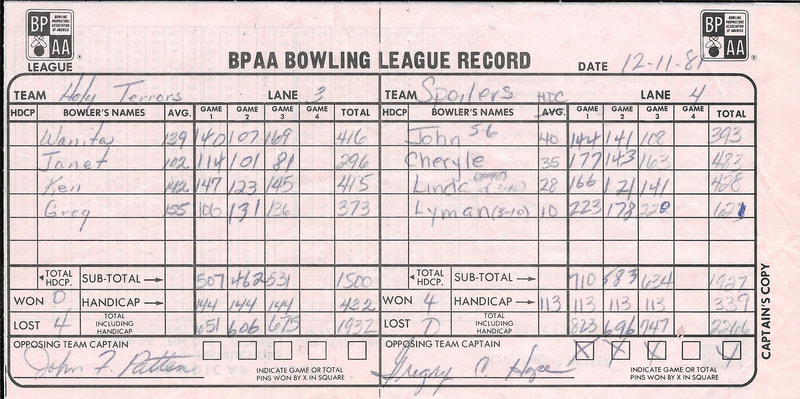 BP AA BOWLING PROPRIETORS ASSOCIATION OF AMERICA
BP AA BOWLING PROPRIETORS ASSOCIATION OF AMERICA
LEAGUE BPAA BOWLING LEAGUE RECORD DATE 12-11-81
TEAM Holy Terrors LANE 3 TEAM Spoilers HDC LANE 4
HDCP BOWLER'S NAMES AVG. GAME 1 GAME 2 GAME 3 GAME 4 TOTAL HDCP BOWLER'S NAMES GAME 1 GAME 2 GAME 3 GAME 4 TOTAL
Wanita 139 140 107 169 416 John 56 40 144 141 108 393
Janet 102 114 101 81 296 Cheryle 35 177 143 163 483
Ken 142 147 123 145 415 Linda (3-10) 28 166 121 141 428
Greg 155 106 131 136 373 Lyman (3-10) 10 223 178 222
TOTAL HDCP. SUB-TOTAL 507 462 531 1500 TOTAL HDCP. SUB-TOTAL 710 583 634 1927
WON 0 HANDICAP 144 144 144 432 WON 4 HANDICAP 113 113 113 113 339
LOST 4 TOTAL INCLUDING HANDICAP 651 606 675 1932 LOST 0 TOTAL INCLUDING HANDICAP 823 696 747 2266
OPPOSING TEAM CAPTAIN OPPOSING TEAM CAPTAIN X X X
John F. Patten INDICATE GAME OR TOTAL PINS WON BY X IN SQUARE Gregry C. INDICATE GAME OR TOTAL PINS WON BY X IN SQUARE
CAPTAIN'S COPY